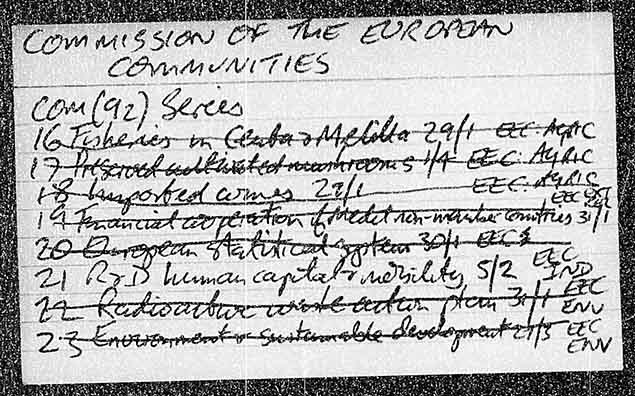 COMMISSION OF THE EUROPEAN
COMMUNITIES
COM(92) Series
16 Fisheries in Ceuta & Melilla 29/1 EEC: AGRIC
17 Preserved cultivated mushrooms 1/4 EEC: AGRIC
18 Imported wines 29/1 EEC: AGRIC
19 Financial cooperation of Medit non-member countries 31/1 EEC
20 European statistical system 30/1 EEC
21 R&D human capital & mobility 5/2 EEC IND
22 Radioactive waste action plan 31/1 EEC ENV
23 Environment & sustainable development 27/3 EEC ENV